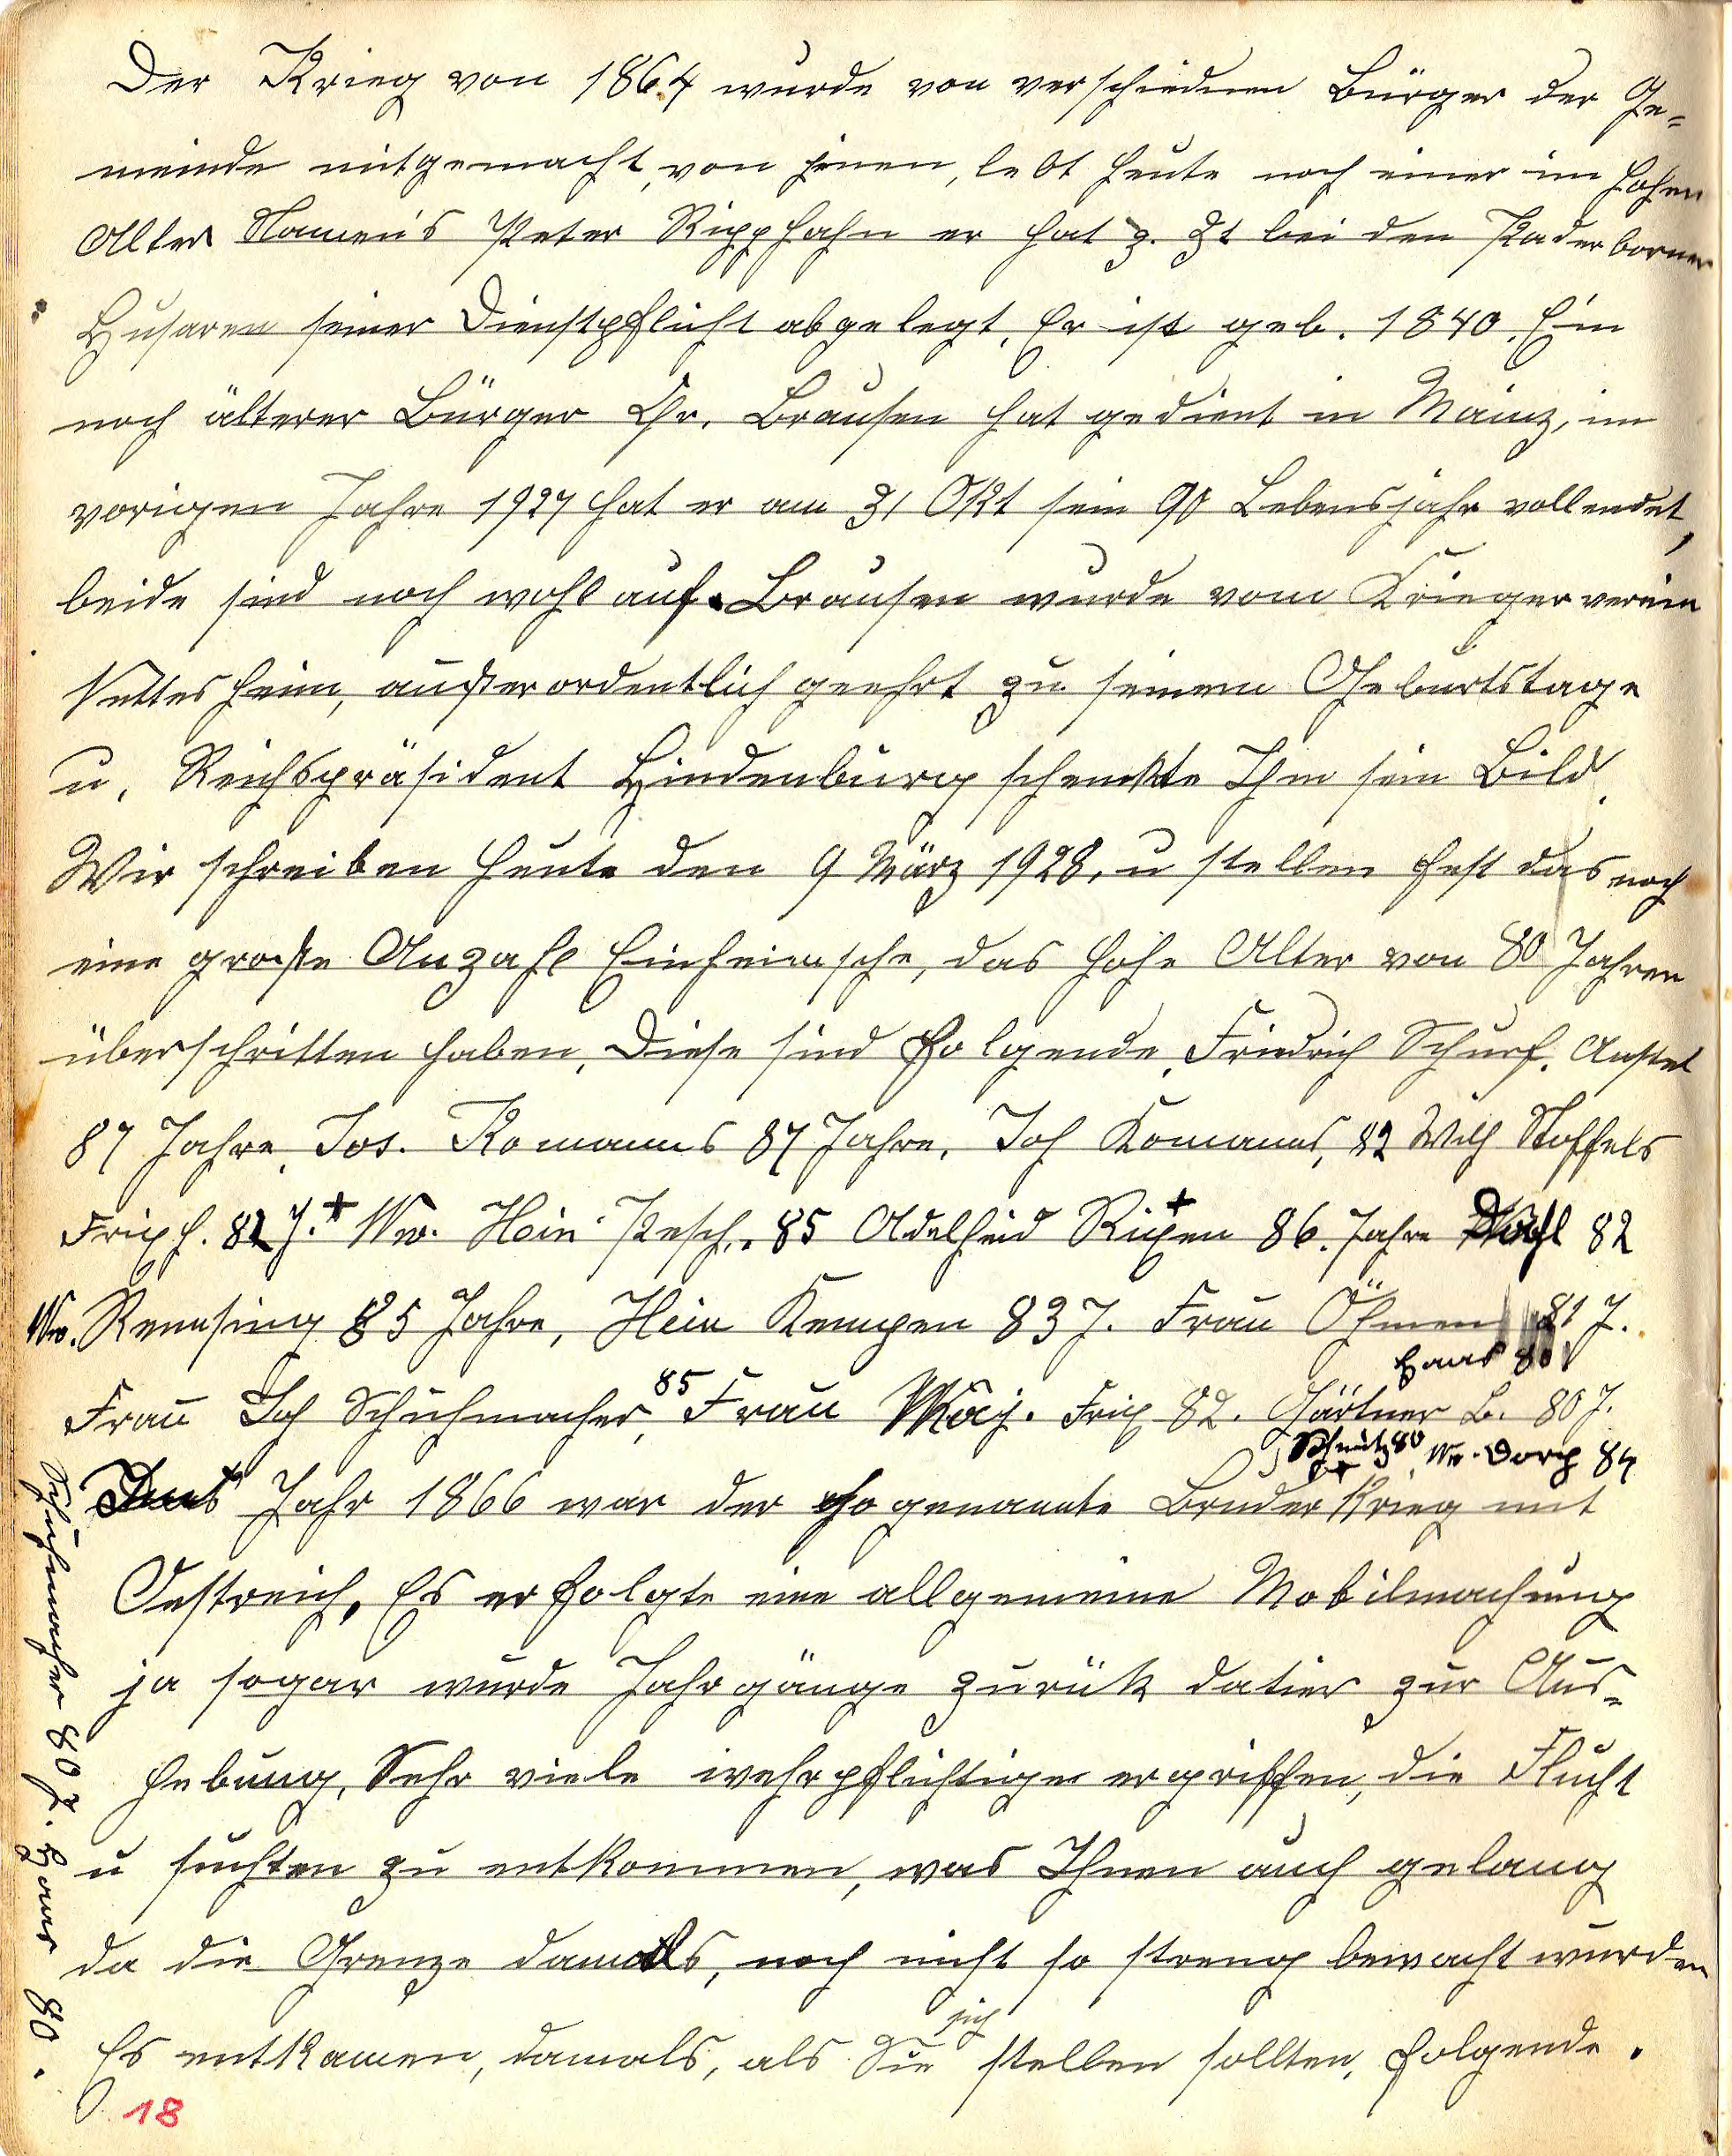 Der Krieg von 1864 wurde von verschiednen Bürger der Ge=
meinde mitgemacht, von jenen, lebt heute noch einer im hohen
Alter Namen's Peter Ripphahn er hat z. Zt bei den Paderborner
Husaren seiner Dienstpflicht abgelegt. Er ist geb. 1840. Ein
noch älterer Bürger Chr. Brausen hat gedient in Mainz, im
vorigen Jahre 1927 hat er am 31 Okt sein 90 Lebensjahr vollendet,
beide sind noch wohlauf. Brausen wurde vom Kriegerverein
Nettesheim, außerordentlich geehrt zu seinem Geburtstage
u. Reichspräsident Hindenburg schenkte Ihm sein Bild.
Wir schreiben heute den 9 März 1928, u stellen fest das noch
eine große Anzahl Einheimsche, das hohe Alter von 80 Jahren
überschritten haben. Diese sind folgende. Friedrich Schurf. Anstel
87 Jahre, Jos. Romanns 87 Jahre, Joh Komanns, 82 Wilh Stoffels
Frixh. 82 J. + Ww. Hein Pesch. 85 Adelheid Rixen + 86. Jahre 82
Ww. Remsing 85 Jahre, Hein Kempen 83 J. Frau Öhmen 81 J.
Haas 80
Frau Joh Schuhmacher, 85 Frau Maj. Frix 82. Gärtner B. 80 J.
Schmitz 80 Ww. Dorp 84
Jahr 1866 war der sogenannte Bruder Krieg mit
Oestreich. Es erfolgte eine allgemeine Mobilmachung
ja sogar wurde Jahrgänge zurük datier zur Aus=
hebung. Sehr viele wehrpflichtige ergriffen, die Flucht
u suchten zu entkommen, was Ihnen auch gelang
da die Grenze damals, noch nicht so streng bewacht wurden
Es entkamen, damals, als Sie sich stellen sollten, folgende.
Schuhmacher 80 J. Haas 80.
18